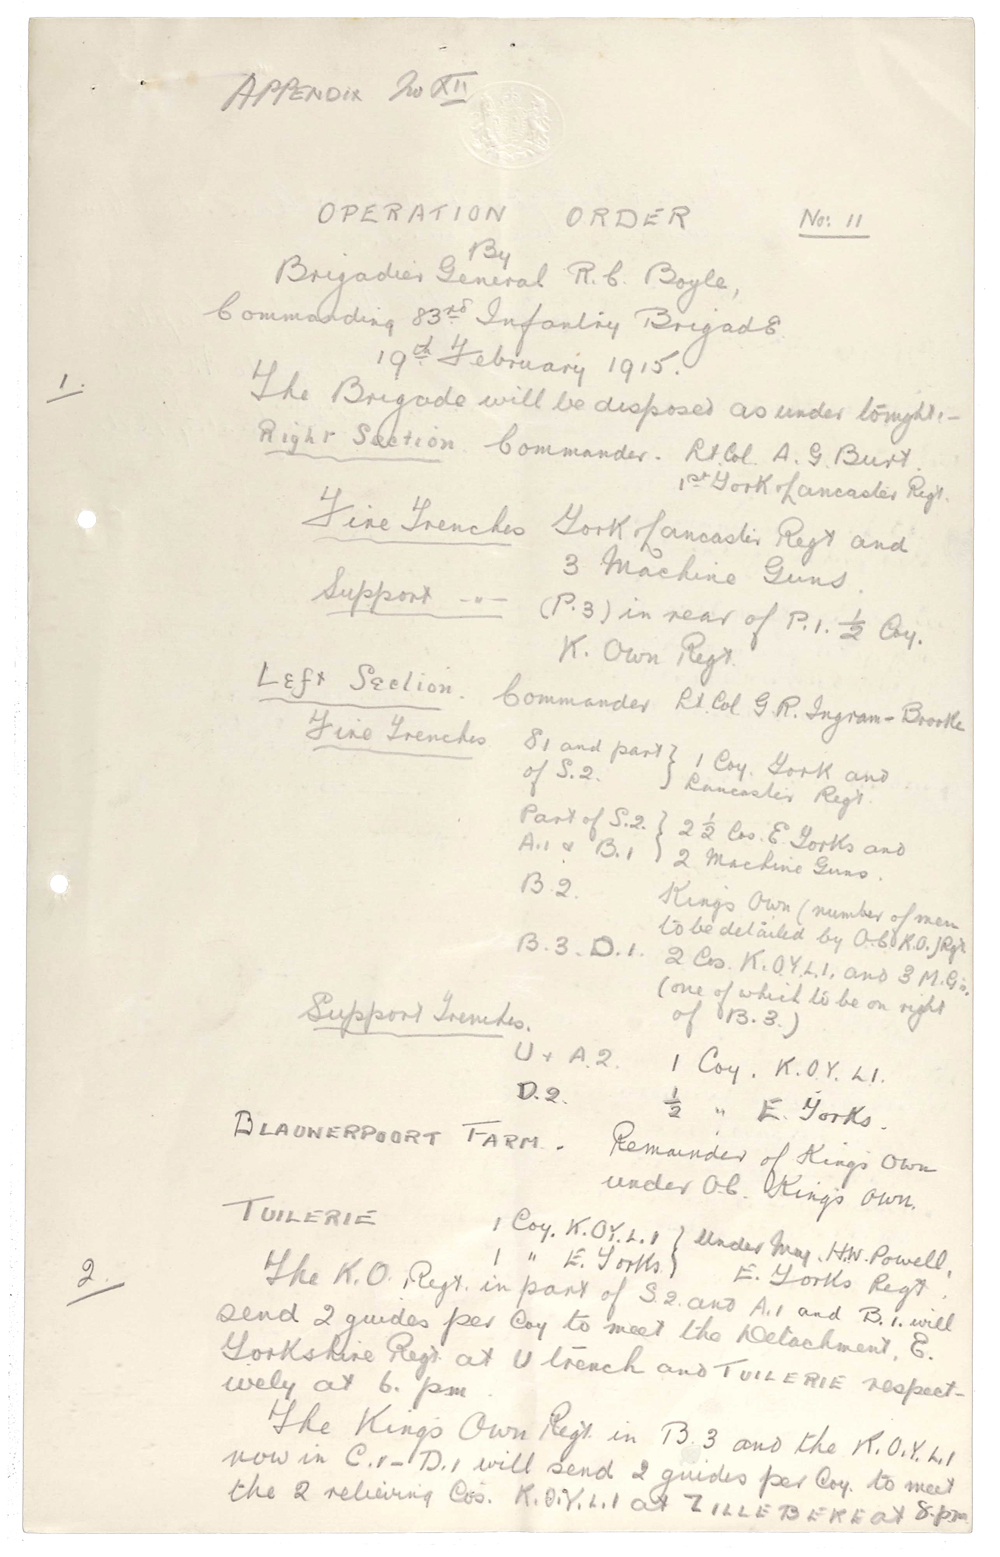 APPENDIX No XII
OPERATION ORDER No: 11
By
Brigadier General R. C. Boyle,
Commanding 83rd Infantry Brigade
19th February 1915.
1.
The Brigade will be disposed as under to night:-
Right Section. Commander. Lt. Col. A. G. Burt.
1st York & Lancaster Regt.
Fire Trenches York & Lancaster Regt and
3 Machine Guns.
Support -"- (P.3) in rear of P.1. ½ Coy.
K. Own Regt.
Left Section. Commander Lt. Col G R. Ingram-Brooke
Fire Trenches S1 and part } 1 Coy. York and
of S.2. } Lancaster Regt.
Part of S.2. } 2 ½ Cos. E Yorks and
A.1 & B.1 } 2 Machine Guns.
B.2. Kings Own (number of men
to be detailed by O.C K.O.) Regt
B.3. D.1. 2 Cos. K.O.Y.L.I. and 3 M.Gs.
(one of which to be on right
of B.3.)
Support Trenches.
U & A.2. 1 Coy. K.O.Y.L.I.
D.2. ½ " E. Yorks.
BLAUWERPOORT FARM. Remainder of Kings Own
under O.C. Kings Own.
TUILERIE 1 Coy. K.O.Y.L.I } Under Maj. H.W. Powell,
1 " E. Yorks. } E. Yorks Regt.
2.
The K.O. Regt. in part of S.2. and A.1 and B.1. will
send 2 guides per Coy to meet the Detachment, E.
Yorkshire Regt. at U trench and TUILERIE respect-
ively at 6. pm.
The Kings Own Regt. in B.3 and the K.O.Y.L.I
now in C.1 - D.1 will send 2 guides per Coy. to meet
the 2 relieving Cos. K.O.Y.L.I at ZILLEBEKE at 8.pm